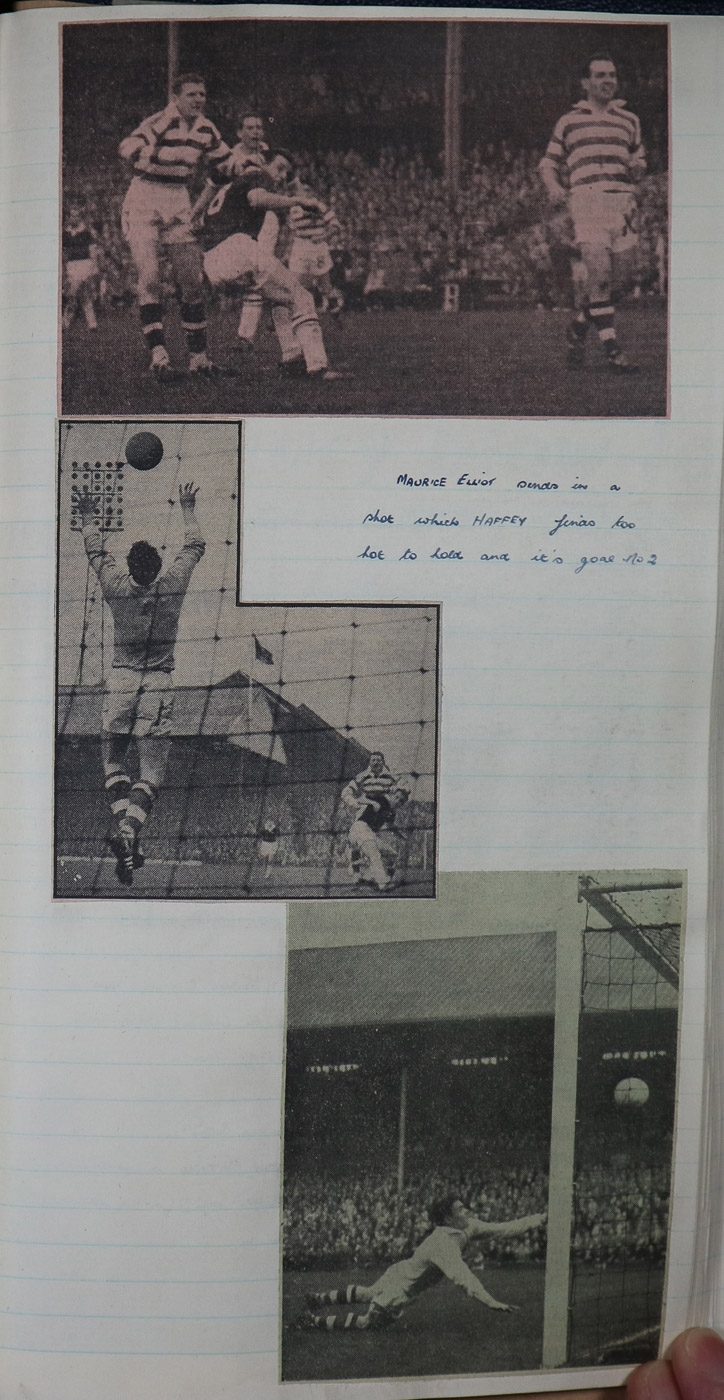 MAURICE Elliot sends in a
shot which HAFFEY finds too
hot to hold and it's goal No 2
8